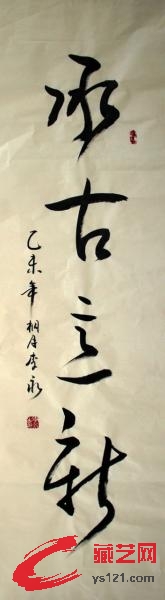 承古立新
乙未年桐月李永
藏艺网
ys121.com